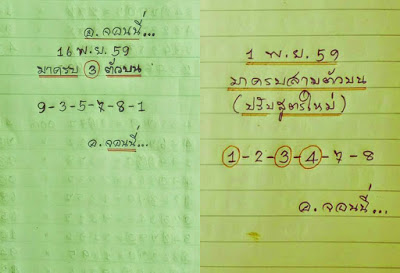 อ.จอนนี่...
16 พ.ย. 59
มาครบ 3 ตัวบน
9-3-5-7-8-1
อ.จอนนี่...
1 พ.ย. 59
มาครบสามตัวบน
(ปรับสูตรใหม่)
1-2-3-4-7-8
อ.จอนนี่...